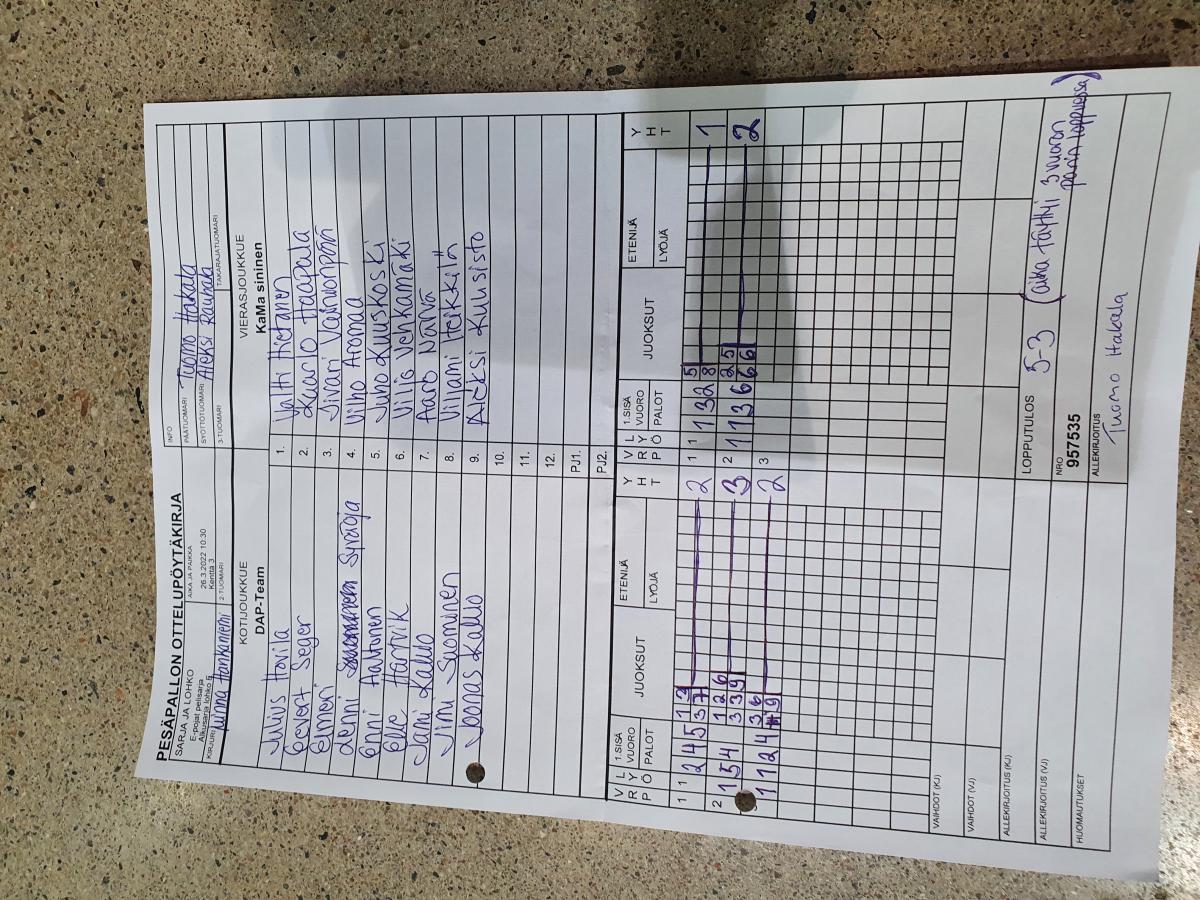 PESÄPALLON OTTELUPÖYTÄKIRJA
SARJA JA LOHKO
E-pojat pelisarja
Alkusarja lohko
AIKA JA PAIKKA
26.3.2022 10:30
Kenttä 3
KIRJURI
2-TUOMARI
INFO
PÄÄTUOMARI Tuomo Hakala
SYÖTTÖTUOMARI Aleksi Rauhala
3-TUOMARI
TAKARAJATUOMARI
KOTIJOUKKUE
DAP-Team
VIERASJOUKKUE
KaMa sininen
Julius Hovila 1. Vatti Hietanen
Eevert Seger 2. Kaarlo Haapala
Elmeri 3. Jivari Vainionpää
Lenni Suominen Syrjälä 4. Viho Aromaa
Enni Aaltonen 5. Juho Kuuskoski
Elle Hartvik 6. Vilis Vehkamäki
Jami Kallio 7. Aaro Närvä
Jimi Suominen 8. Viljami Heikkilä
Joonas Kallio 9. Aleksi Kuusisto
10.
11.
12.
PJ1.
PJ2.
V R P L Y Ö 1.SISÄ VUORO PALOT JUOKSUT ETENIJÄ LYÖJÄ Y H T
V R P L Y Ö 1.SISÄ VUORO PALOT JUOKSUT ETENIJÄ LYÖJÄ Y H T
1 1 2 4 5 1 3 2 3 7 2
1 1 1 3 2 5 8 1
2 1 5 4 1 2 6 3 3 9 3
2 1 1 3 6 2 5 6 6 2
1 1 2 4 3 6 9 2
3
VAIHDOT (KJ)
VAIHDOT (VJ)
ALLEKIRJOITUS (KJ)
ALLEKIRJOITUS (VJ)
HUOMAUTUKSET
LOPPUTULOS 5-3 (aika täyttyi 3 vuoron parin loppuessa)
NRO
957535
ALLEKIRJOITUS
Tuomo Hakala